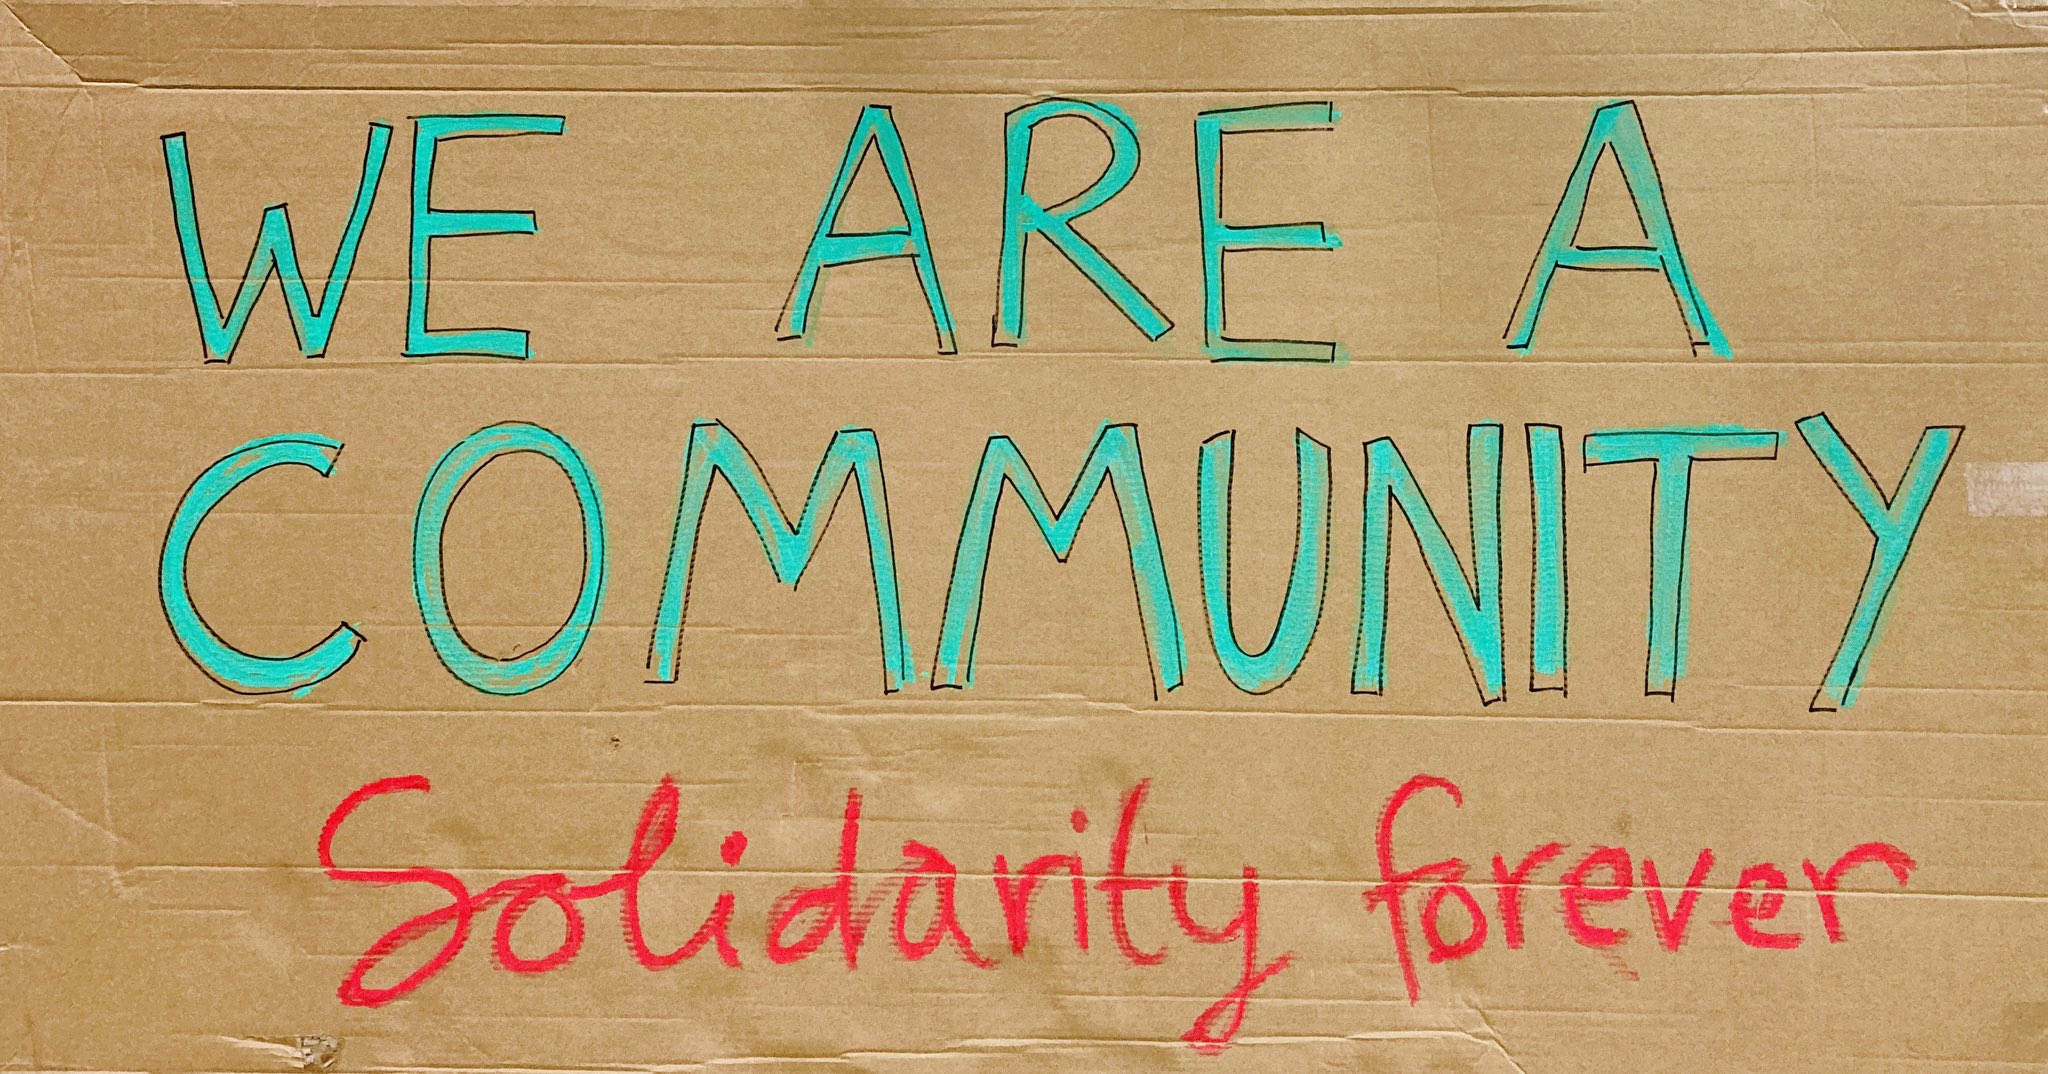 WE ARE A
COMMUNITY
Solidarity forever